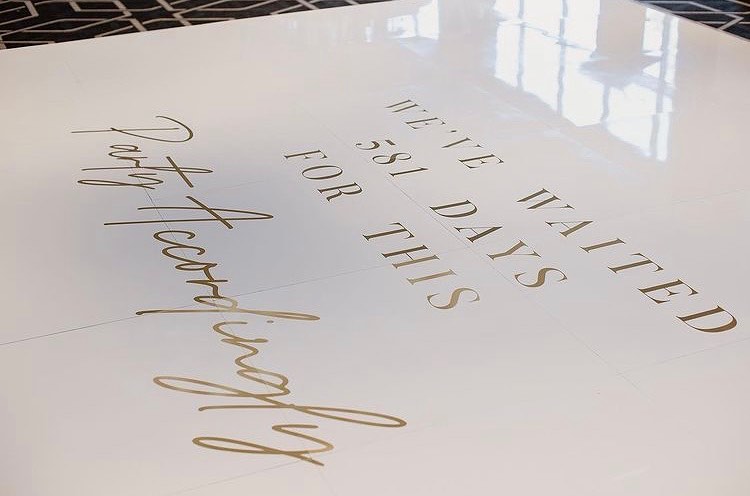 WE'VE WAITED
581 DAYS
FOR THIS
Party Accordingly